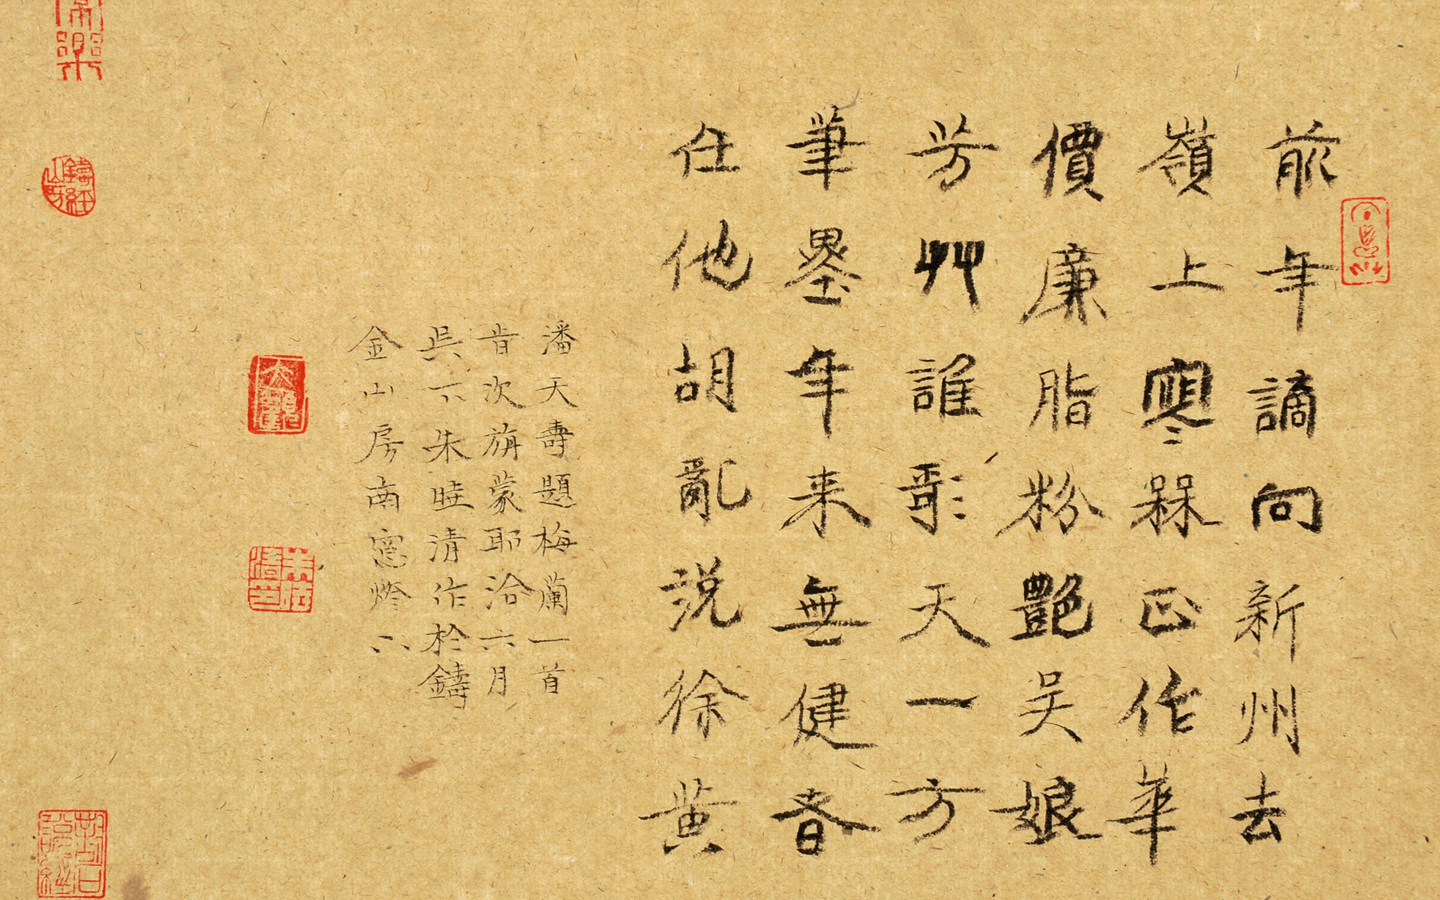 前年謫向新州去
嶺上寒槑正作華
價廉脂粉艷吳娘
芳艸誰彫天一方
筆墨年来無健者
任他胡亂說徐黄
潘天壽題梅蘭一首
昔次旃蒙耶洽六月
吳下朱畦清作於鑄
金山房南窓燈下